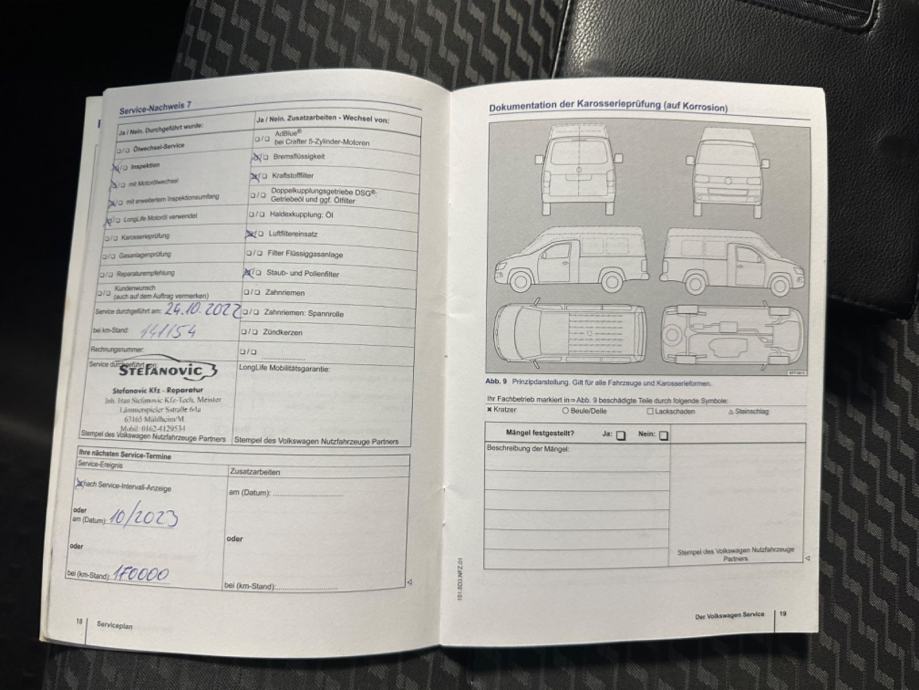 Service-Nachweis 7
Ja / Nein. Durchgeführt wurde:
❏/❏ Ölwechsel-Service
❏/❏ Inspektion
❏/❏ mit Motorölwechsel
❏/❏ mit erweitertem Inspektionsumfang
❏/❏ LongLife Motoröl verwendet
❏/❏ Karosserieprüfung
❏/❏ Gasanlagenprüfung
❏/❏ Reparaturempfehlung
❏/❏ Kundenwunsch
(auch auf dem Auftrag vermerken)
Service durchgeführt am: 24.10.2022
bei km-Stand: 141154
Rechnungsnummer:
Service durchgeführt
STEFANOVIC
Stefanovic Kfz - Reparatur
Stefanovic Kfz-Tech. Meister
Lämmerspieler 64a
63165 Mühlheim/M.
Mobil: 0162-4129534
Stempel des Volkswagen Nutzfahrzeuge Partners
Ja / Nein. Zusatzarbeiten - Wechsel von:
❏/❏ AdBlue®
bei Crafter 5-Zylinder-Motoren
❏/❏ Bremsflüssigkeit
❏/❏ Kraftstofffilter
❏/❏ Doppelkupplungsgetriebe DSG®:
Getriebeöl und ggf. Ölfilter
❏/❏ Haldexkupplung: Öl
❏/❏ Luftfiltereinsatz
❏/❏ Filter Flüssiggasanlage
❏/❏ Staub- und Pollenfilter
❏/❏ Zahnriemen
❏/❏ Zahnriemen: Spannrolle
❏/❏ Zündkerzen
❏/❏
LongLife Mobilitätsgarantie:
Stempel des Volkswagen Nutzfahrzeuge Partners
Ihre nächsten Service-Termine
Service-Ereignis
nach Service-Intervall-Anzeige
oder
am (Datum): 10/2023
oder
bei (km-Stand): 170000
Zusatzarbeiten
am (Datum):
oder
bei (km-Stand):
18 Serviceplan
Dokumentation der Karosserieprüfung (auf Korrosion)
Abb. 9 Prinzipdarstellung. Gilt für alle Fahrzeuge und Karosserieformen.
Ihr Fachbetrieb markiert in ⇒ Abb. 9 beschädigte Teile durch folgende Symbole:
✖ Kratzer ○ Beule/Delle □ Lackschaden △ Steinschlag
Mängel festgestellt? Ja: ❏ Nein: ❏
Beschreibung der Mängel:
Stempel des Volkswagen Nutzfahrzeuge
Partners
Der Volkswagen Service 19